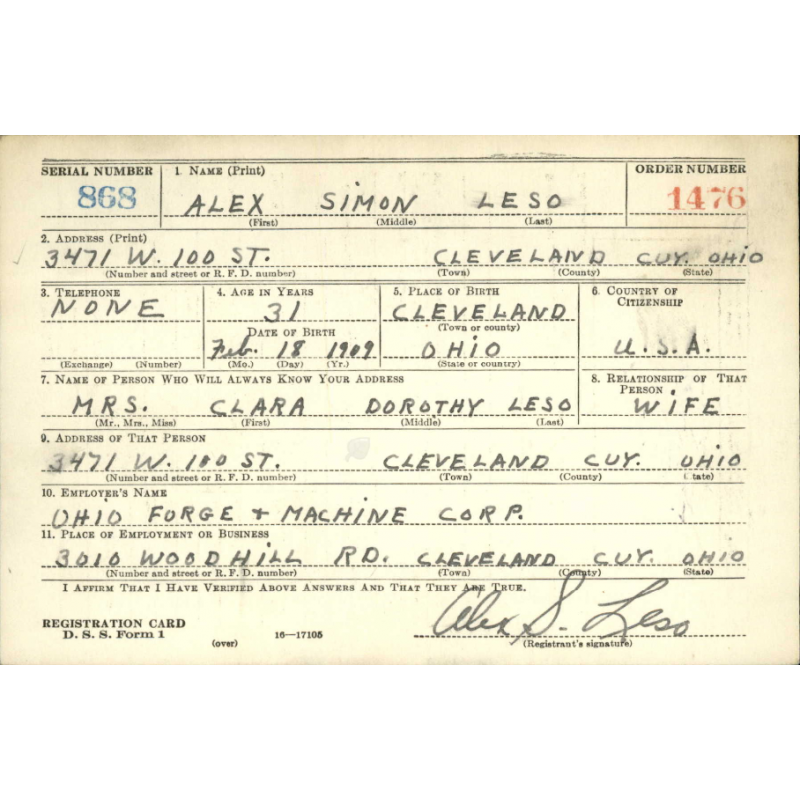 SERIAL NUMBER 1. NAME (Print) ORDER NUMBER
868 ALEX SIMON LESO 1476
(First) (Middle) (Last)
2. ADDRESS (Print)
3471 W. 100 ST. CLEVELAND CUY. OHIO
(Number and street or R. F. D. number) (Town) (County) (State)
3. TELEPHONE 4. AGE IN YEARS 5. PLACE OF BIRTH 6. COUNTRY OF
CITIZENSHIP
NONE 31 CLEVELAND
(Town or county)
DATE OF BIRTH
Feb. 18 1909 OHIO U.S.A.
(Exchange) (Number) (Mo.) (Day) (Yr.) (State or country)
7. NAME OF PERSON WHO WILL ALWAYS KNOW YOUR ADDRESS 8. RELATIONSHIP OF THAT
PERSON
MRS. CLARA DOROTHY LESO WIFE
(Mr., Mrs., Miss) (First) (Middle) (Last)
9. ADDRESS OF THAT PERSON
3471 W. 100 ST. CLEVELAND CUY. OHIO
(Number and street or R. F. D. number) (Town) (County) (State)
10. EMPLOYER'S NAME
OHIO FORGE + MACHINE CORP.
11. PLACE OF EMPLOYMENT OR BUSINESS
3010 WOODHILL RD. CLEVELAND CUY. OHIO
(Number and street or R. F. D. number) (Town) (County) (State)
I AFFIRM THAT I HAVE VERIFIED ABOVE ANSWERS AND THAT THEY ARE TRUE.
REGISTRATION CARD
D. S. S. Form 1 (over) 16—17105 Alex S. Leso
(Registrant's signature)